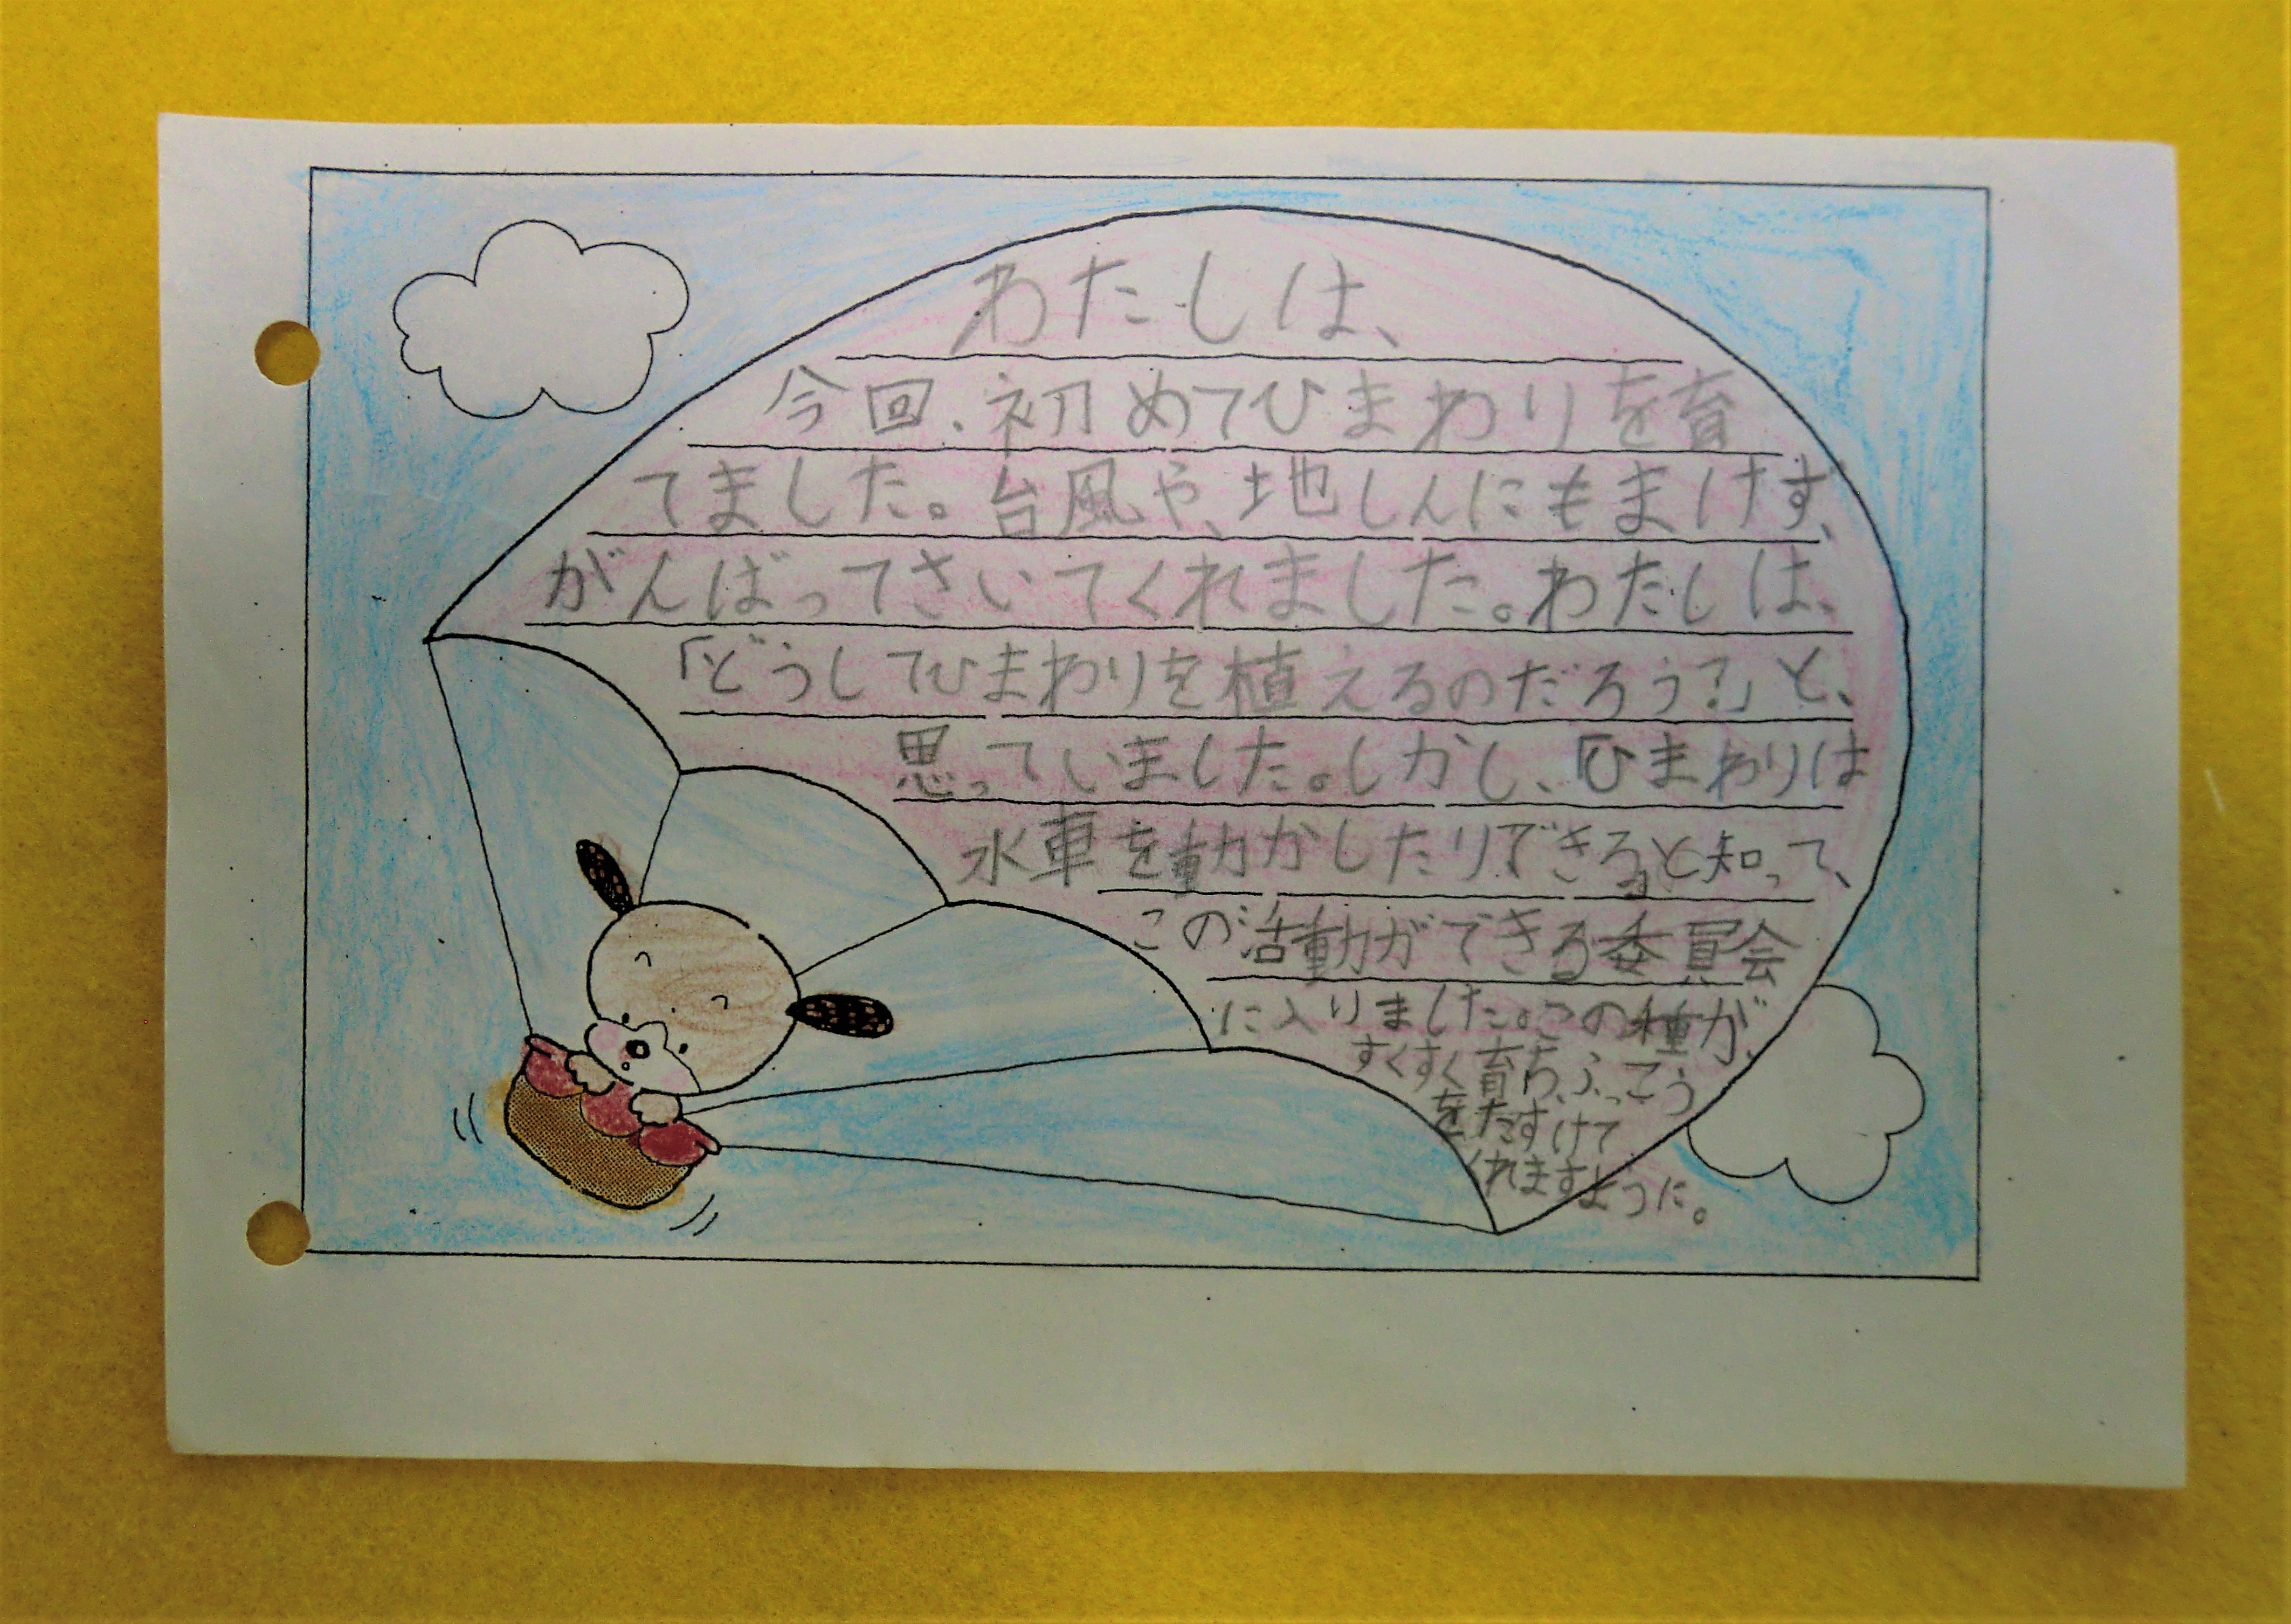 わたしは、
今回、初めてひまわりを育
てました。台風や、地しんにもまけず、
がんばってさいてくれました。わたしは、
「どうしてひまわりを植えるのだろう?」と、
思っていました。しかし、「ひまわりは
水車を動かしたりできると知って、
この活動ができる委員会
に入りました。この種が、
すくすく育ち、ふっこう
をたすけて
くれますように。